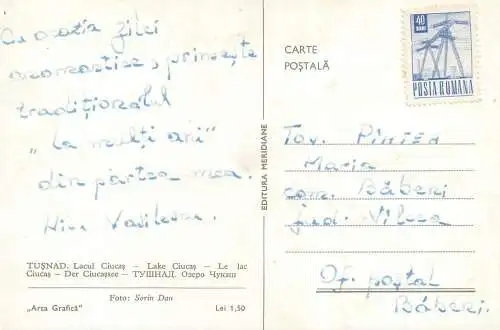 Cu ocazia zilei
onomastice, primește
tradiționalul
"La mulți ani"
din partea mea.
Vasilescu
TUȘNAD. Lacul Ciucaș — Lake Ciucaș — Le lac
Ciucaș — Der Ciucașsee — ТУШНАД. Озеро Чукаш
Foto: Sorin Dan
„Arta Grafică”
Lei 1,50
EDITURA MERIDIANE
CARTE
POȘTALĂ
40
BANI
POSTA ROMANA
Tov.
Maria
com. Băbeni
jud. Vîlcea
Of. poștal
Băbeni.